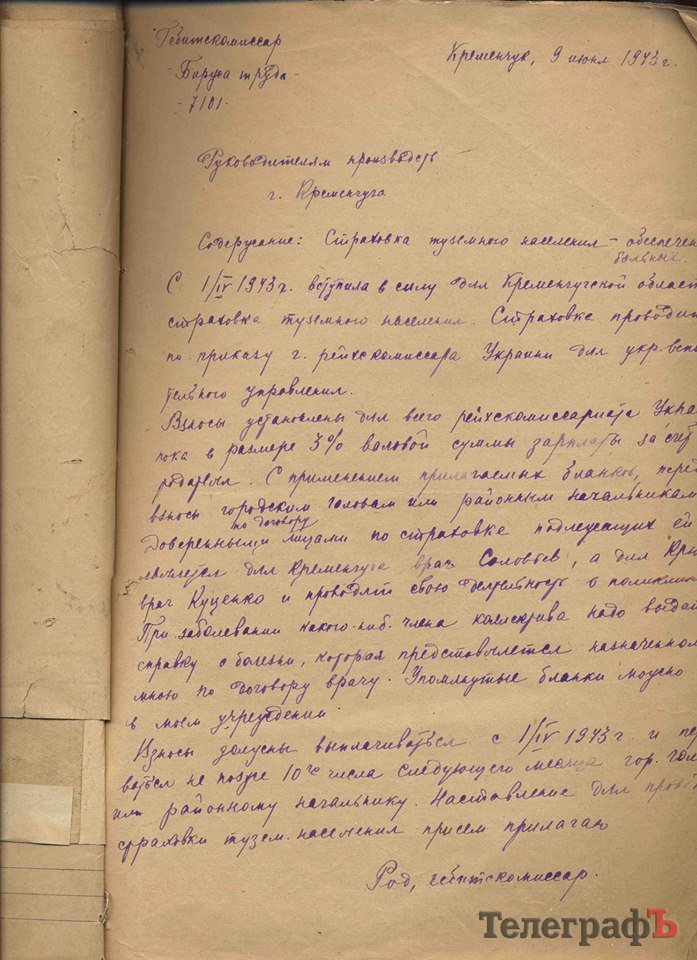 Гебитскомиссар
Кременчук, 9 июня 1943 г.
- Биржа труда -
- 7101 -
Руководителям производств
г. Кременчуга
Содержание: Страховка туземного населения - обеспечен
больных
С 1/IV 1943 г. вступила в силу для Кременчугской област
страховка туземного населения. Страховка проводит
по приказу г. рейхскомиссара Украины для укр. вспо
тельного управления.
Взносы установлены для всего рейхскомиссариата Укра
пока в размере 3% валовой суммы зарплаты за счет
родателя. С применением прилагаемых бланков, пере
взносы городским головам или районным начальникам
по договору
Доверенными лицами по страховке подлежащих ей
является для Кременчуга врач Соловьев, а для Крю
врач Куценко и проводят свою деятельность в поликлини
При заболевании какого-ниб. члена коллектива надо выдай
справку о болезни, которая предстовляется назначенном
мною по договору врачу. Упомянутые бланки можно
в моем учреждении.
Взносы должны выплачиваться с 1/IV 1943 г. и пер
ваться не позже 10го числа следующего месяца гор. голо
или районному начальнику. Наставление для прове
страховки тузем. населения присем прилагаю
Род, гебитскомиссар.
ТелеграфЪ